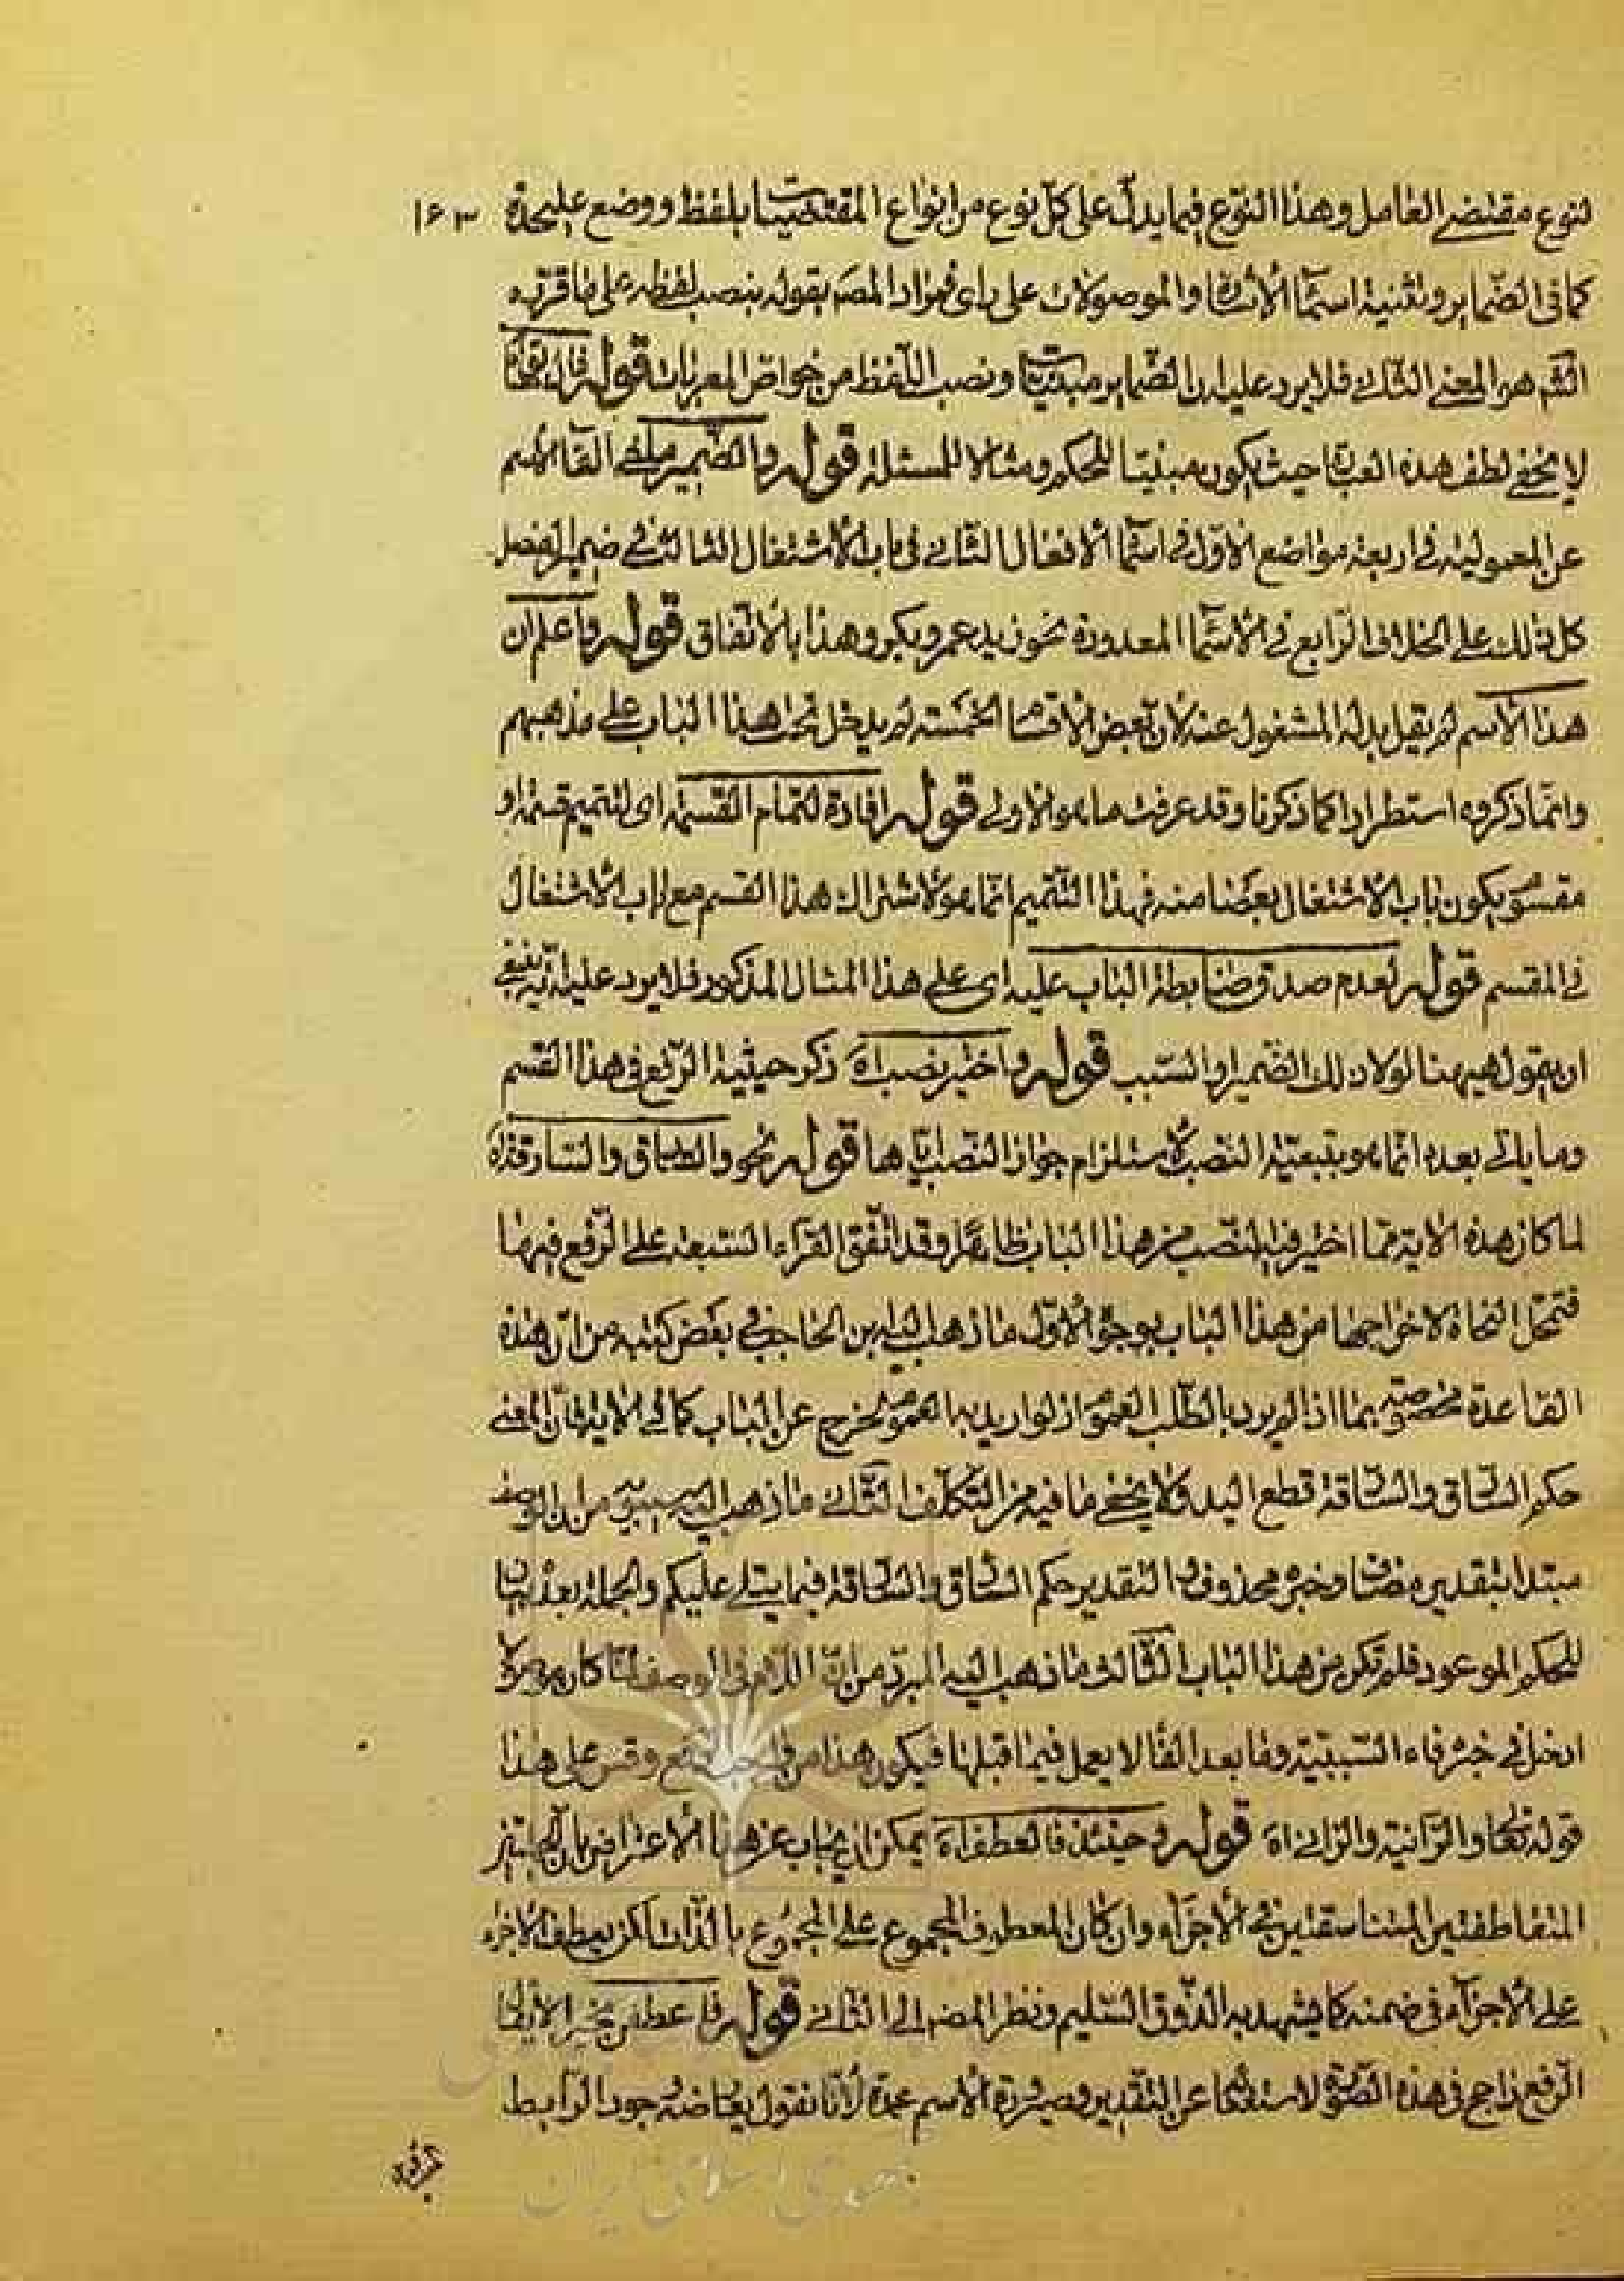 لنوع مقتضى العامل وهذا النوع فيما يدل على كل نوع من انواع المقتضيات بلفظ ووضع عليحدة ١۶٣
كما فى الضماير وتثنية اسماء الاشارة والموصولات على راى فمراد المصم بقوله بنصب لفظه على ما قرره
هو المعنى الثانى فلا يرد عليه ان الضماير مبنيات ونصب اللفظ من خواص المعربات قوله
لا يخفى لطف هذه العبارة حيث يكون مبنيا للحكم ومثالا للمسئلة قوله والضمير ملغى الغاء الاسم
عن المعمولية فى اربعة مواضع الاول فى اسماء الافعال الثانى فى باب الاشتغال الثالث فى ضمير الفصل
كل ذلك على الخلاف الرابع فى الاسماء المعدودة نحو زيد عمرو بكر وهذا بالاتفاق قوله واعلم ان
هذا الاسم لم يقل بدله المشغول عنه لان بعض الاقسام الخمسة لم يدخل تحت هذا الباب على مذهبهم
وانما ذكروه استطرادا كما ذكرنا وقد عرفت ما هو الاولى قوله افادة لتمام القسمة اى لتتميم قسمة
مقسم يكون باب الاشتغال بعضا منه فهذا التتميم انما هو لاشتراك هذا القسم مع باب الاشتغال
فى المقسم قوله لعدم صدق ضابطة الباب عليه اى على هذا المثال المذكور فلا يرد عليه انه ينبغى
ان يقول هيهنا لولا ذلك الضمير او السبب قوله واختير نصب اه ذكر حيثية الرفع فى هذا القسم
وما يأتى بعده انما هو بتبعية النصب لاستلزام جواز النصب اياها قوله نحو والسارق والسارقة اه
لما كان هذه الاية مما اختير فيه النصب من هذا الباب ظاهرا وقد اتفق القراء السبعة على الرفع فيها
فتمحل النحاة لاخراجها من هذا الباب بوجوه الاول ما ذهب اليه ابن الحاجب فى بعض كتبه من ان هذه
القاعدة مخصوصة بما اذا لم يرد بالطلب العموم اذ لو اريد به العموم لخرج عن الباب كما فى الاية فان المعنى
حكم السارق والسارقة قطع اليد ولا يخفى ما فيه من التكلف الثانى ما ذهب اليه سيبويه من ان الوصف
مبتدا بتقدير مضاف وخبره محذوف اذ التقدير حكم السارق والسارقة فيما يتلى عليكم والجملة بعده بيان
للحكم الموعود فلم تكن من هذا الباب الثالث ما ذهب اليه المبرد من ان اللام فى الوصف لما كان موصولا
ادخل فى خبره فاء السببية وما بعد الفاء لا يعمل فيما قبلها فيكون هذا من واجب الرفع وقس على هذا
قوله تعالى والزانية والزانى اه قوله وحينئذ فالعطف اه يمكن ان يجاب عن هذا الاعتراض بان الجملتين
المتعاطفتين المتناسقتين فى الاجزاء وان كان المعطوف المجموع على المجموع بالذات لكن يعطف الاجزاء
على الاجزاء فى ضمنه كما يشهد به الذوق السليم ونظر المصم الى الثانى قوله فاء عطف
الرفع راجح فى هذه الصورة لاستغنائها عن التقدير وصيرورة الاسم عمدة لانا نقول وجود الرابط